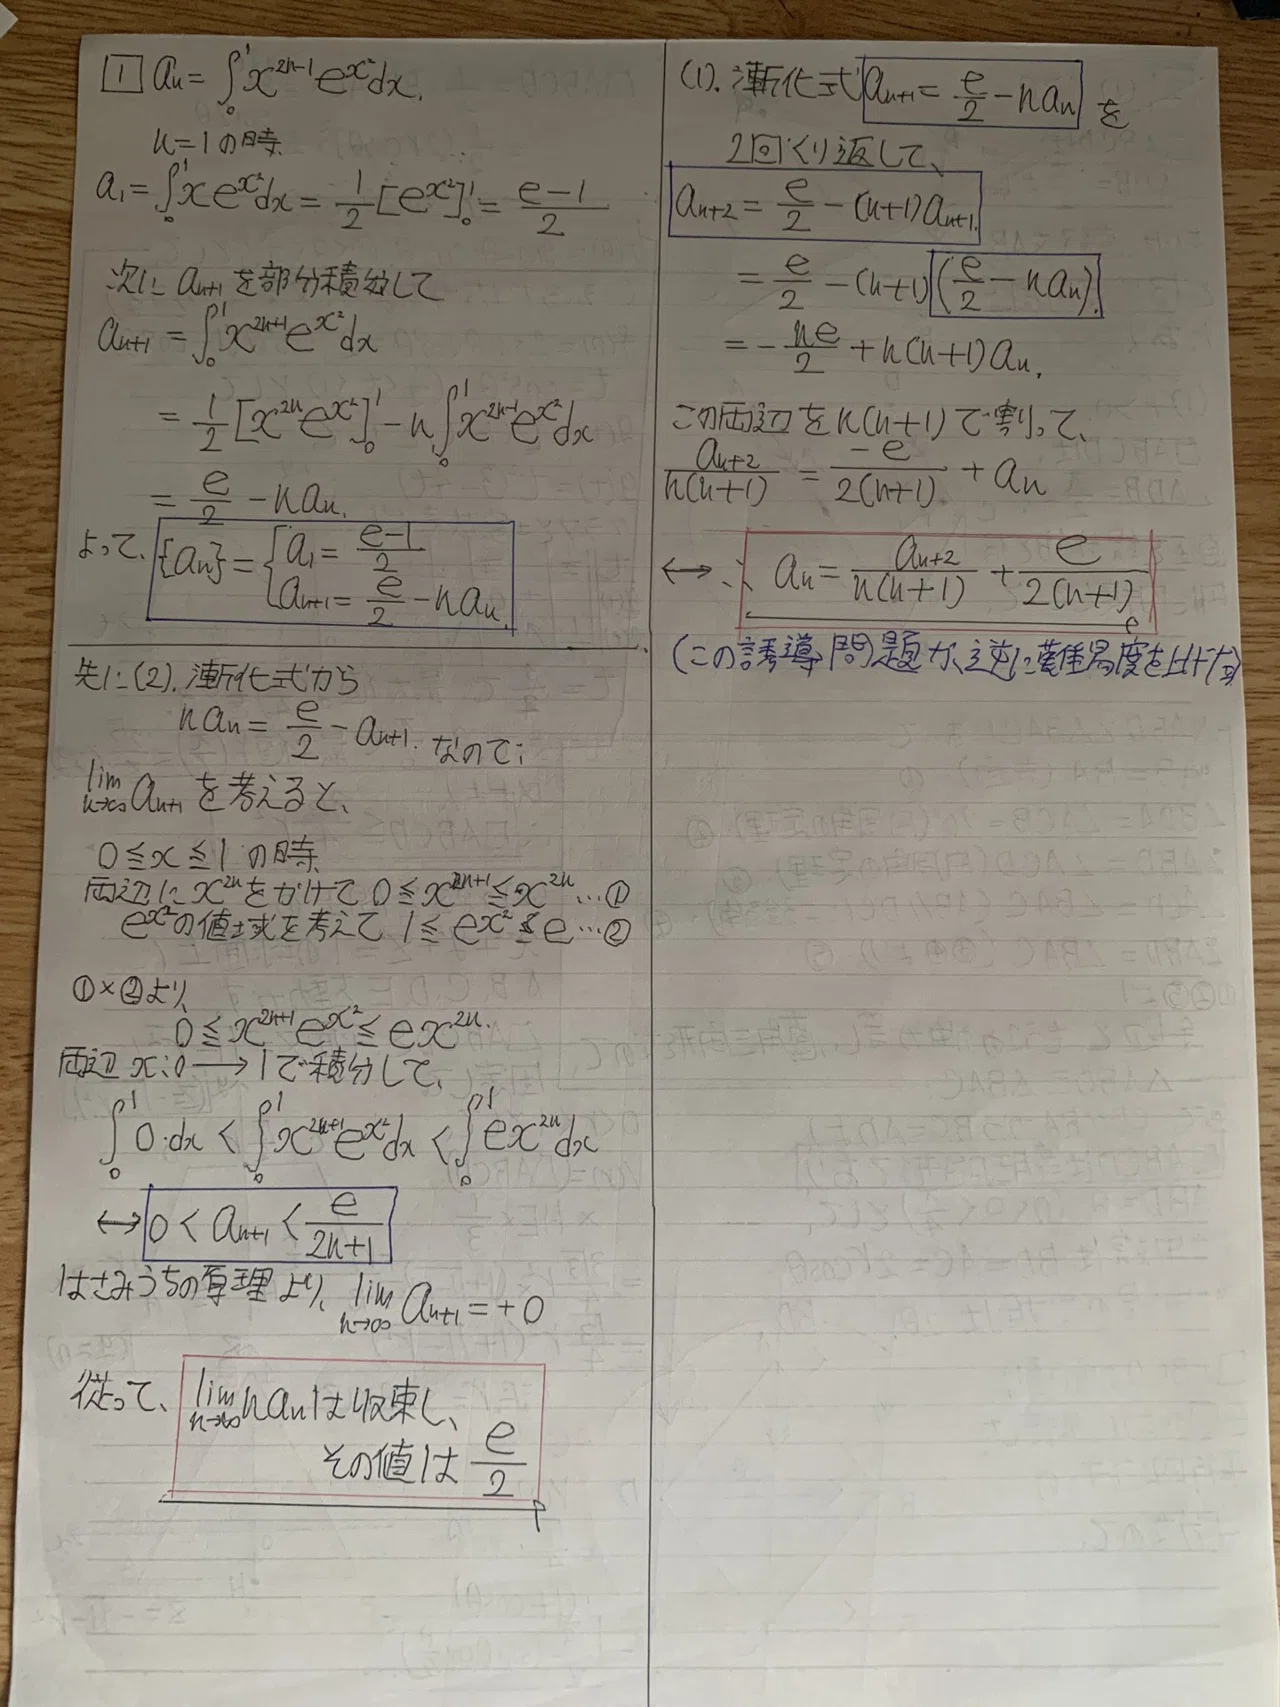 1 aₙ = ∫₀¹ x²ⁿ⁻¹ e^{x²} dx.
n=1の時
a₁ = ∫₀¹ x e^{x²} dx = 1/2 [e^{x²}]₀¹ = (e-1)/2
次に aₙ₊₁ を部分積分して
aₙ₊₁ = ∫₀¹ x²ⁿ⁺¹ e^{x²} dx
= 1/2 [x²ⁿ e^{x²}]₀¹ - n ∫₀¹ x²ⁿ⁻¹ e^{x²} dx
= e/2 - n aₙ.
よって、 {aₙ} = { a₁ = (e-1)/2
aₙ₊₁ = e/2 - n aₙ.
先に(2). 漸化式から
n aₙ = e/2 - aₙ₊₁. なので;
lim n→∞ aₙ₊₁ を考えると、
0 ≦ x ≦ 1 の時
両辺に x²ⁿ をかけて 0 ≦ x²ⁿ⁺¹ ≦ x²ⁿ …①
e^{x²} の値域を考えて 1 ≦ e^{x²} ≦ e …②
①×②より、
0 ≦ x²ⁿ⁺¹ e^{x²} ≦ e x²ⁿ.
両辺 x:0 → 1で積分して、
∫₀¹ 0・dx < ∫₀¹ x²ⁿ⁺¹ e^{x²} dx < ∫₀¹ e x²ⁿ dx
↔ 0 < aₙ₊₁ < e/(2n+1)
はさみうちの原理より、 lim n→∞ aₙ₊₁ = +0
従って、 lim n→∞ n aₙ は収束し、
その値は e/2
(1). 漸化式 aₙ₊₁ = e/2 - n aₙ を
2回くり返して、
aₙ₊₂ = e/2 - (n+1) aₙ₊₁.
= e/2 - (n+1) (e/2 - n aₙ).
= - ne/2 + n(n+1) aₙ.
この両辺を n(n+1) で割って、
aₙ₊₂/(n(n+1)) = -e/(2(n+1)) + aₙ
↔ ∴ aₙ = aₙ₊₂/(n(n+1)) + e/(2(n+1))
(この誘導問題が、逆に難易度を上げたる)